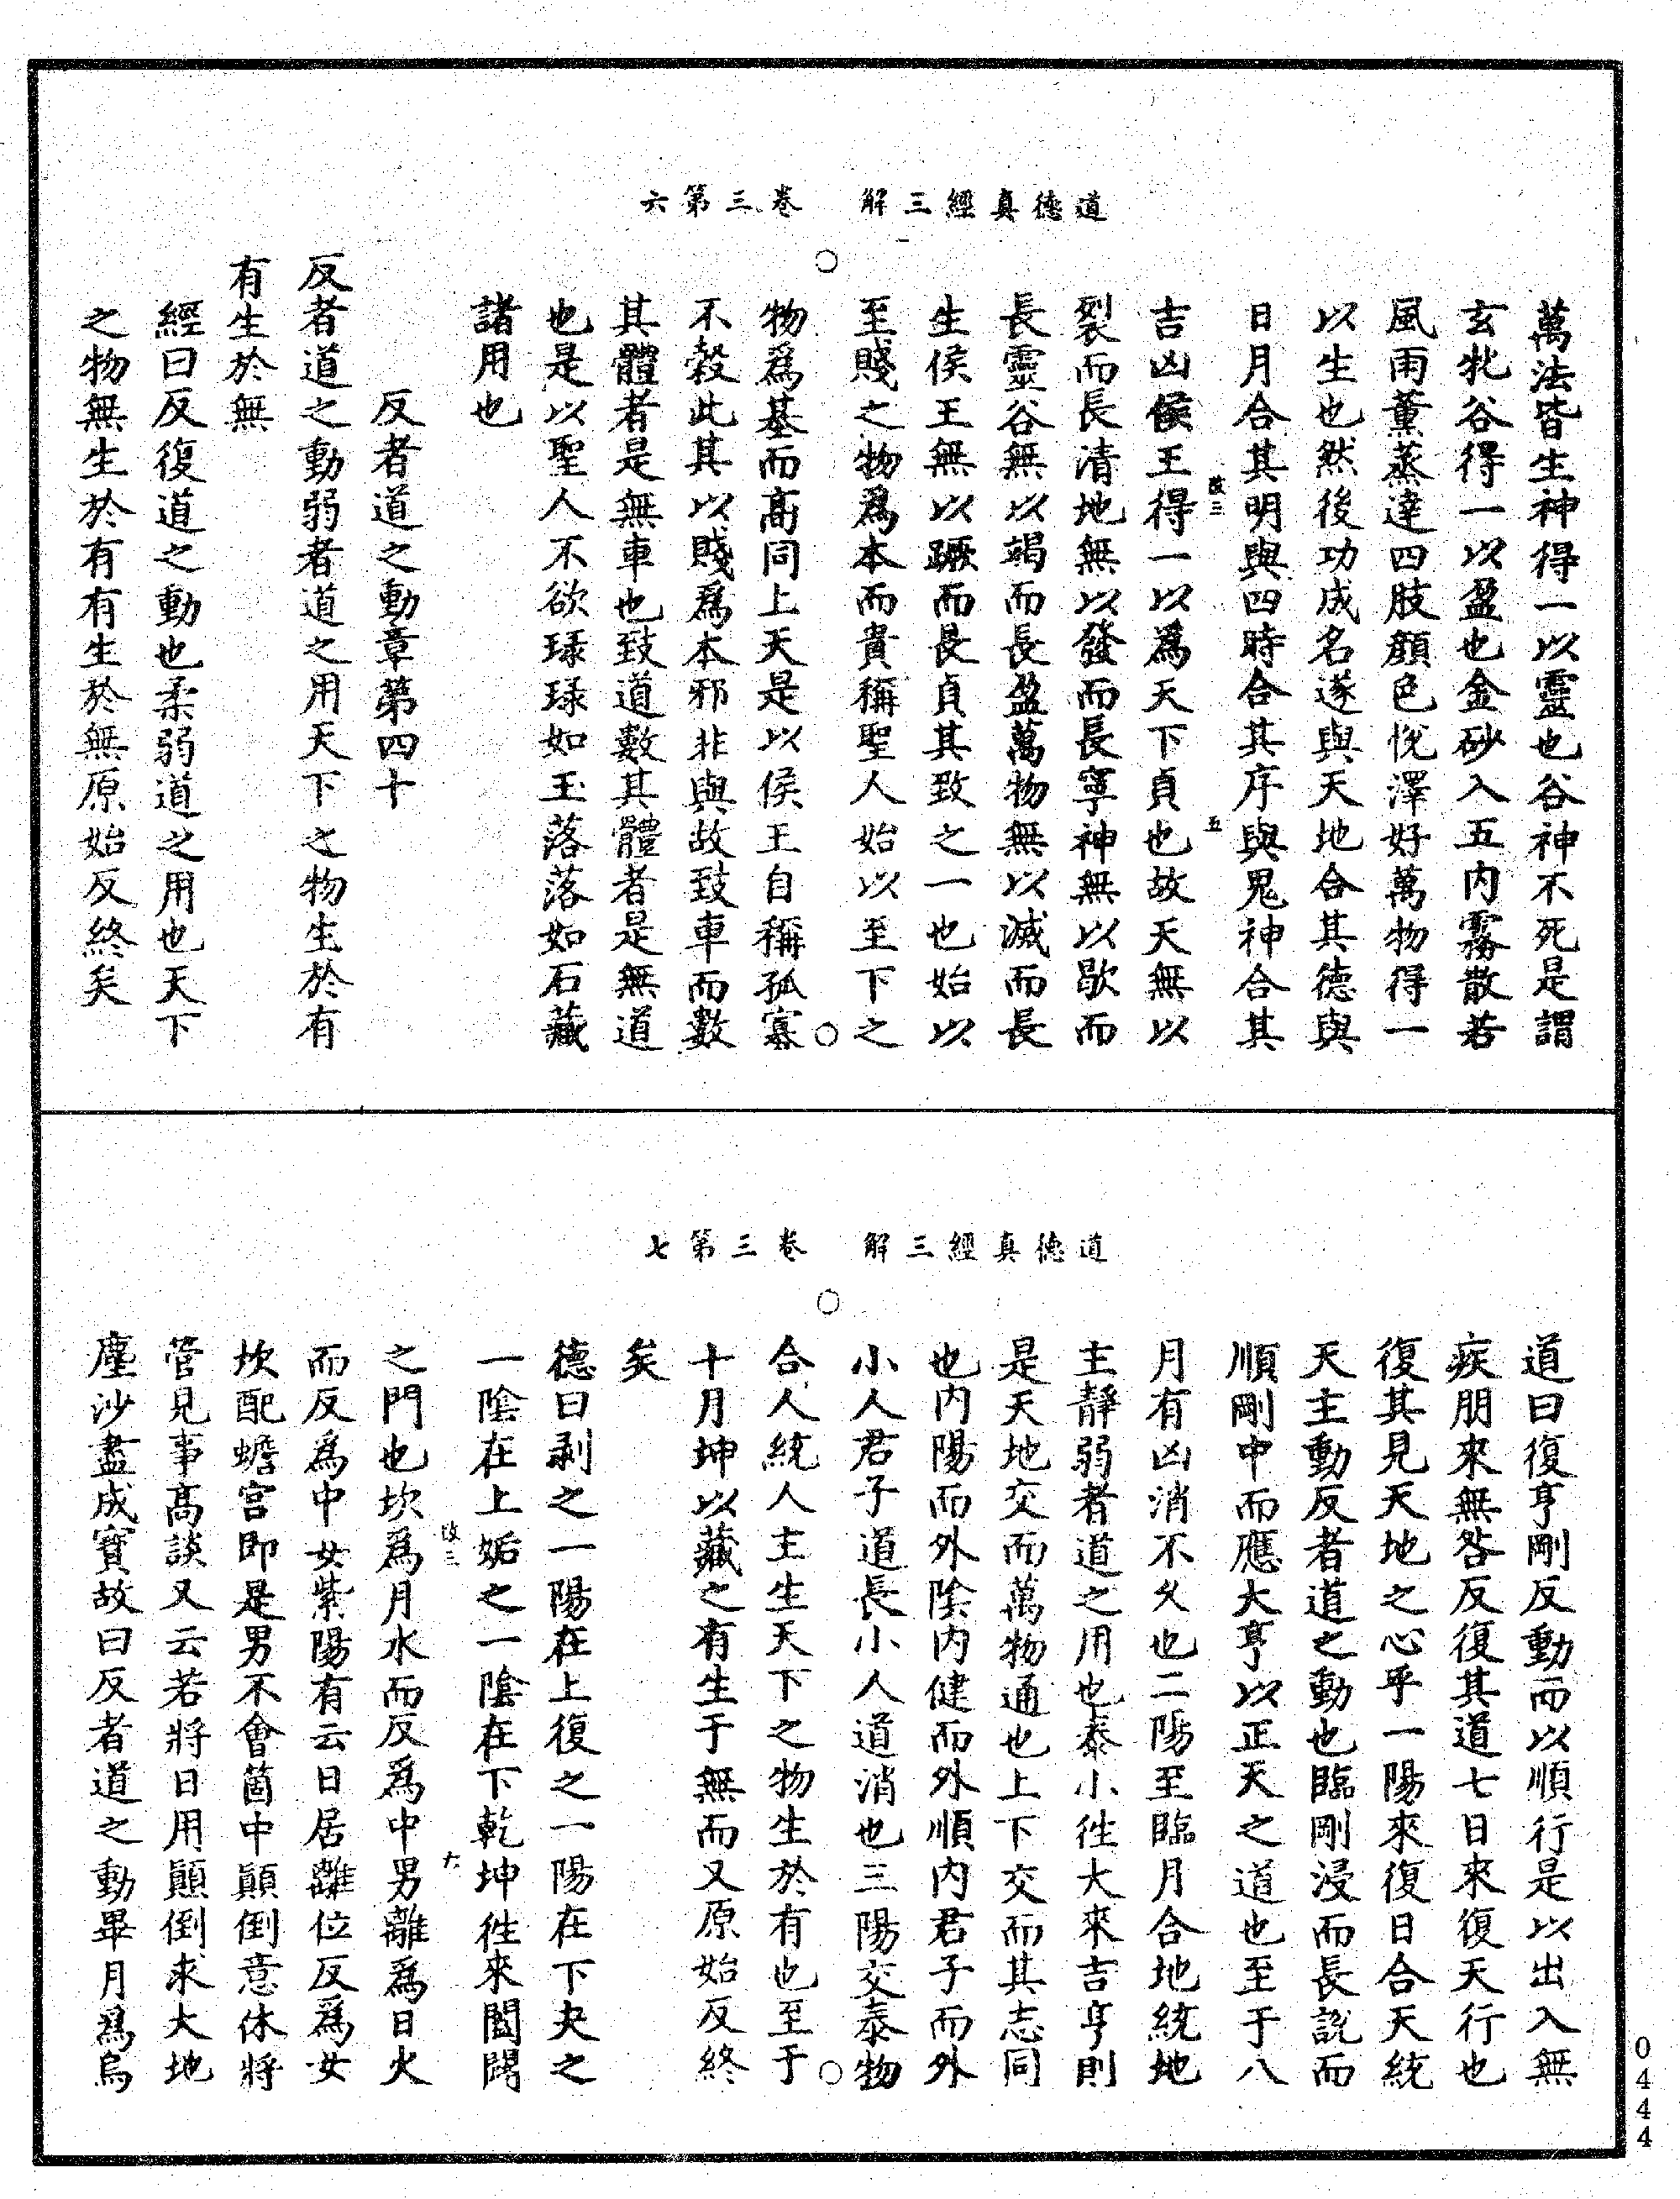 道德真經三解　卷三第六
萬法皆生神得一以靈也谷神不死是謂
玄牝谷得一以盈也金砂入五內霧散若
風雨薰蒸達四肢顏色悅澤好萬物得一
以生也然後功成名遂與天地合其德與
日月合其明與四時合其序與鬼神合其
改三　五
吉凶侯王得一以爲天下貞也故天無以
裂而長清地無以發而長寧神無以歇而
長靈谷無以竭而長盈萬物無以滅而長
生侯王無以蹶而長貞其致之一也始以
至賤之物爲本而貴稱聖人始以至下之
物爲基而高同上天是以侯王自稱孤寡
不穀此其以賤爲本邪非與故致車而數
其體者是無車也致道數其體者是無道
也是以聖人不欲琭琭如玉落落如石藏
諸用也
反者道之動章第四十
反者道之動弱者道之用天下之物生於有
有生於無
經曰反復道之動也柔弱道之用也天下
之物無生於有有生於無原始反終矣
道德真經三解　卷三第七
道曰復亨剛反動而以順行是以出入無
疾朋來無咎反復其道七日來復天行也
復其見天地之心乎一陽來復日合天統
天主動反者道之動也臨剛浸而長說而
順剛中而應大亨以正天之道也至于八
月有凶消不久也二陽至臨月合地統地
主靜弱者道之用也泰小徃大來吉亨則
是天地交而萬物通也上下交而其志同
也內陽而外陰內健而外順內君子而外
小人君子道長小人道消也三陽交泰物
合人統人主生天下之物生於有也至于
十月坤以藏之有生于無而又原始反終
矣
德曰剥之一陽在上復之一陽在下夬之
一陰在上姤之一陰在下乾坤徃來闔闢
改三　六
之門也坎爲月水而反爲中男離爲日火
而反爲中女紫陽有云日居離位反爲女
坎配蟾宮即是男不會箇中顛倒意休將
管見事高談又云若將日用顛倒求大地
塵沙盡成寶故曰反者道之動畢月爲烏
0444